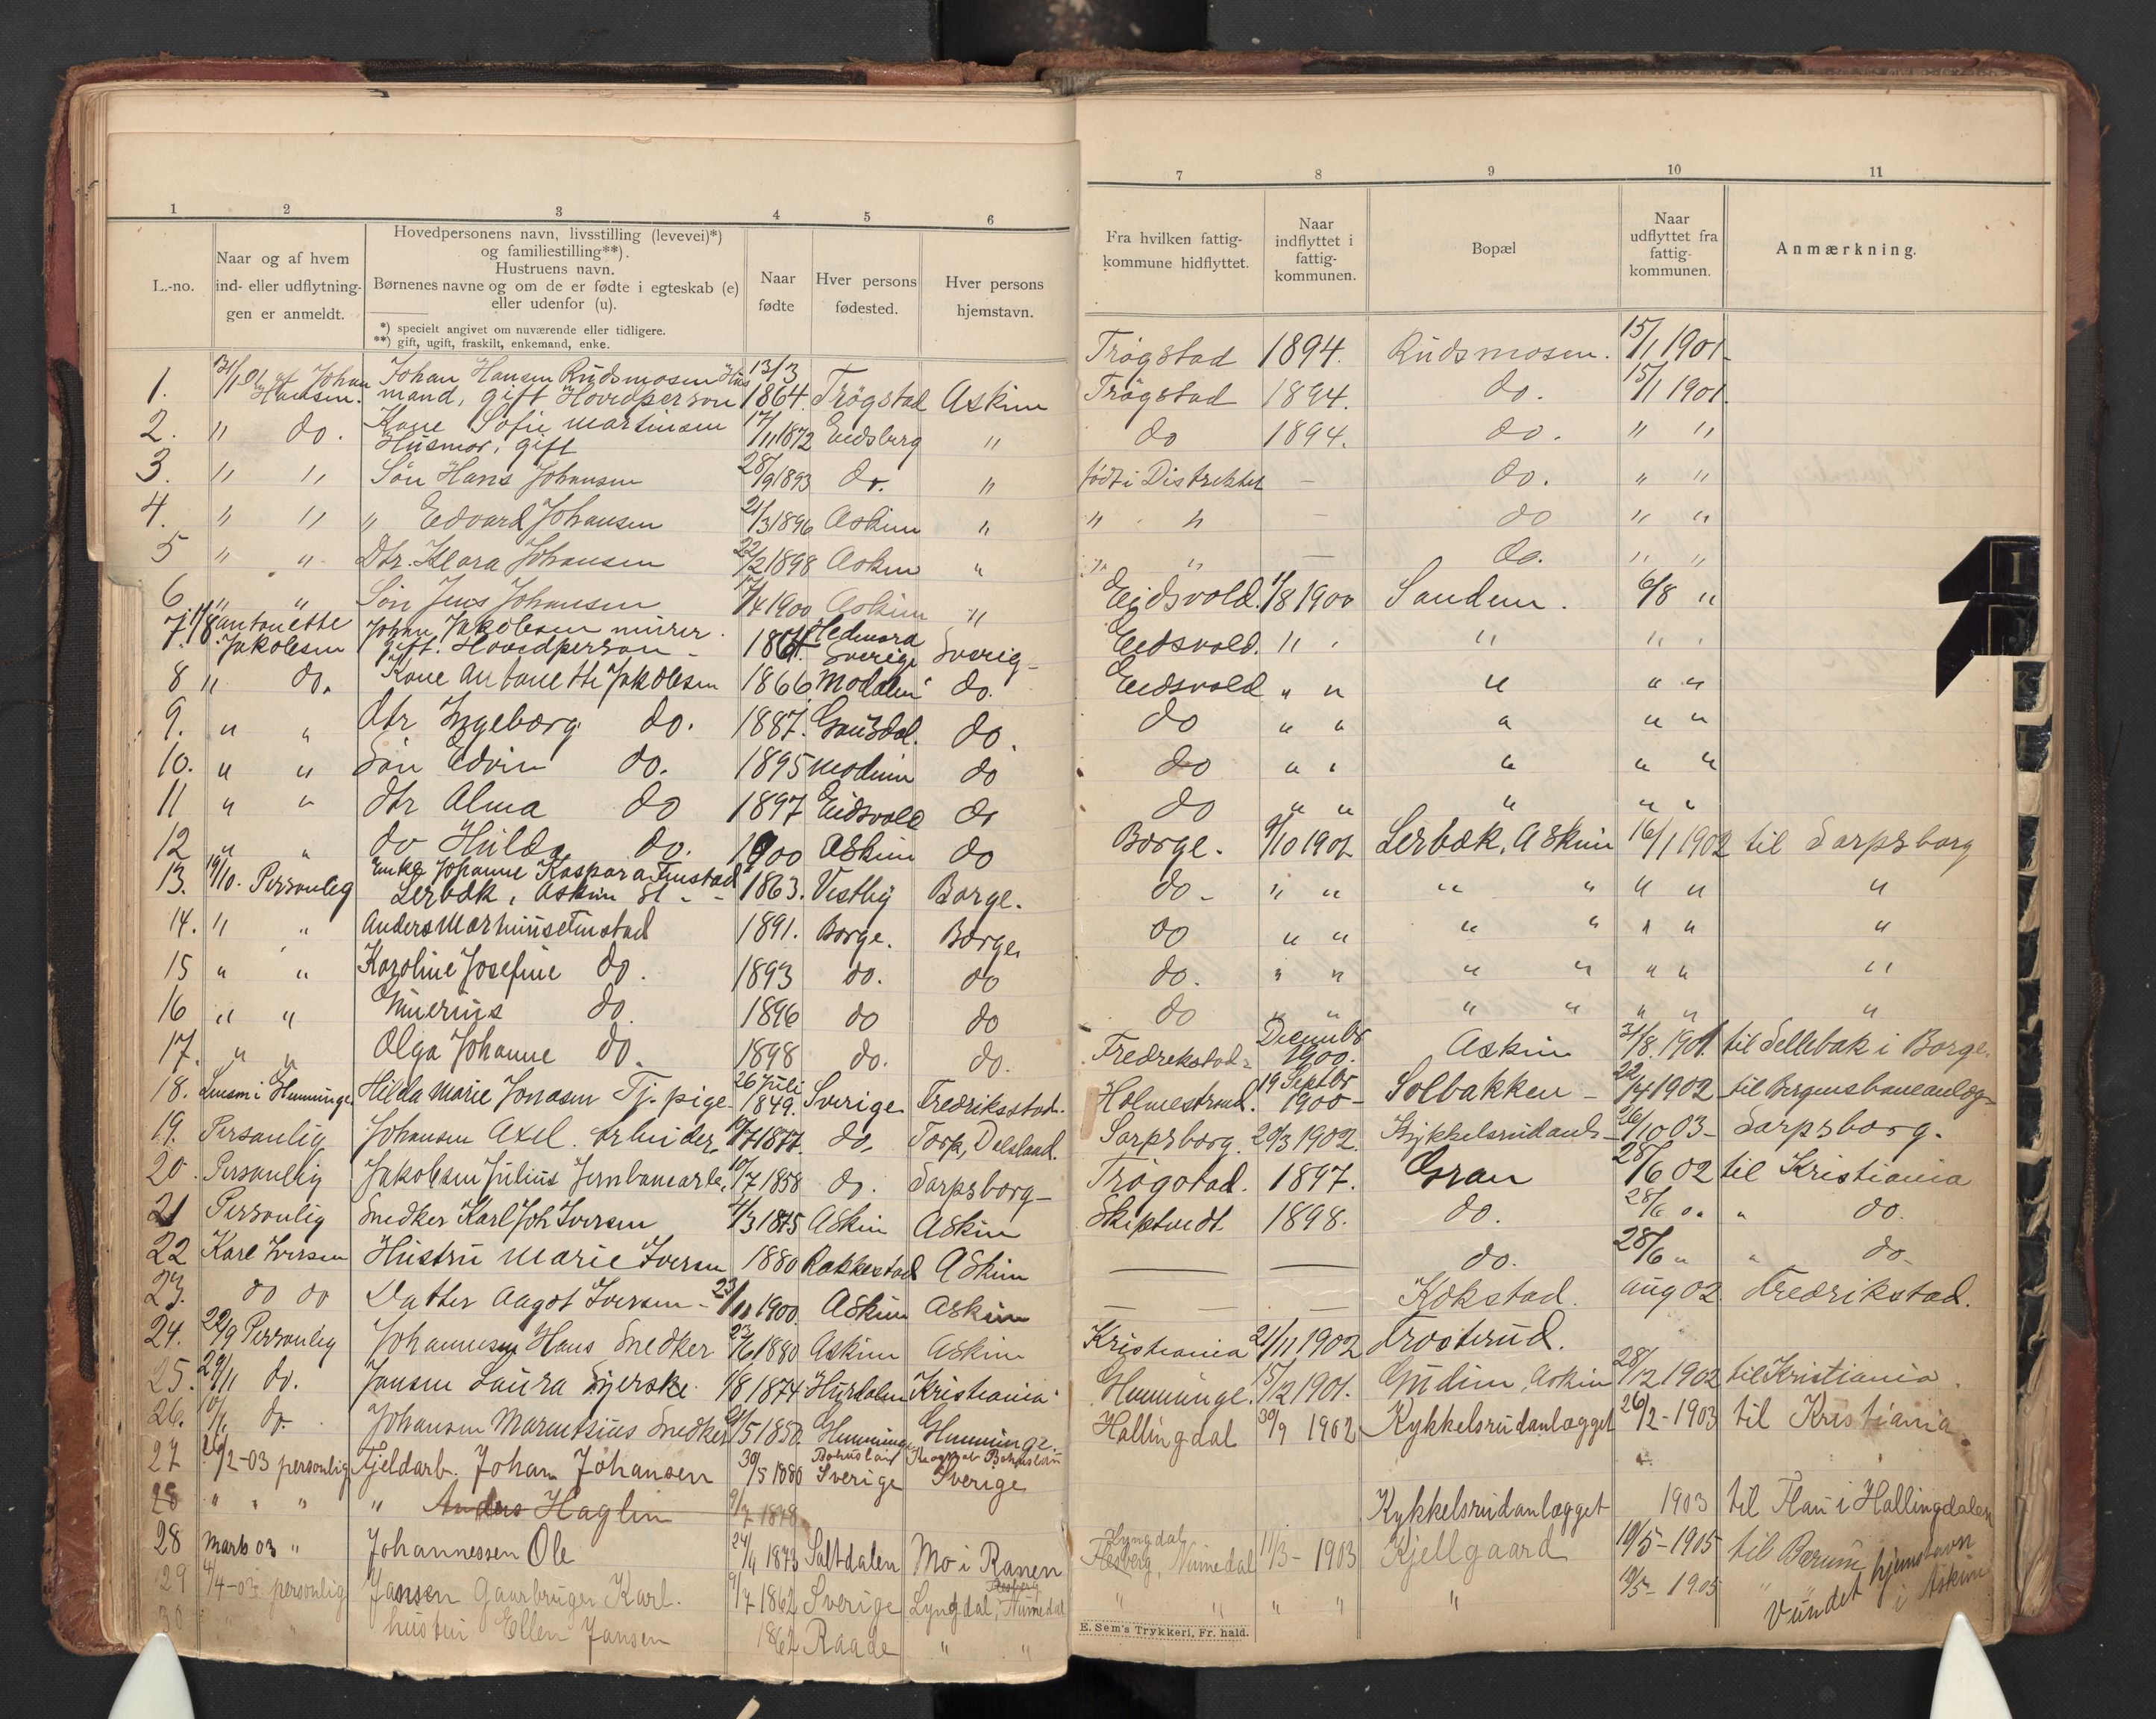 1 2 3 4 5 6
L.-no.
Naar og af hvem
ind- eller udflytnin-
gen er anmeldt.
Hovedpersonens navn, livsstilling (levevei)*)
og familiestilling**).
Hustruens navn.
Børnenes navne og om de er fødte i egteskab (e)
eller udenfor (u).
*) specielt angivet om nuværende eller tidligere.
**) gift, ugift, fraskilt, enkemand, enke.
Naar
fødte
Hver persons
fødested.
Hver persons
hjemstavn.
1. 31/1 01 af Johan Johan Hansen Rudsmosen Hus 13/3
Hansen. mand, gift Hovedperson 1864. Trøgstad Askim
2. " do. Kone Sofie Martinsen 17/11 1872 Eidsberg "
Husmor, gift
3. " " Søn Hans Johansen 28/9 1893 do. "
4. " " " Edvard Johansen 21/3 1896 Askim "
5 " " Dtr. Klara Johansen 22/2 1898 Askim "
6 " " Søn Jens Johansen 17/4 1900 Askim "
7. 11/8 Antonette Johan Jakobsen murer. Hedemora
Jakobsen gift. Hovedperson - 1864. Sverige Sverig-
8 " do. Kone Antonette Jakobsen 1866 Modum do.
9. " " Dtr Ingeborg do. 1887. Gausdal. do.
10. " " Søn Edvin do. 1895 Modum do
11 " " Dtr Alma do 1897 Eidsvold do
12 " " do Hulda do. 1900 Askim do
13. 19/10. Personlig Enke Johanne Kaspara Finstad
Lerbæk, Askim St - - 1863. Vestby Borge.
14. " " Anders Marthinsen Finstad 1891. Borge. Borge,
15 " " Karoline Josefine do. 1893 do. do
16 " " do. 1896 do do
17. " " Olga Johanne do. 1898 do. do.
18. Lensm i Hemminge. Hilda Marie Jonasen Tj. pige 26 juli 1849. Sverige Fredriksstad.
19. Personlig Johansen Axel. Arbeider, 10/7 1877. do, Torp, Dalsland.
20. Personlig Jakobsen Julius Jernbanearb. 10/7 1858 do. Sarpsborg-
21 Personlig Snedker Karl Joh Iversen 4/3 1875 Askim Askim
22 Karl Iversen Hustru Marie Iversen 1880 Rakkestad Askim
23. do do Datter Aagot Iversen - 23/11 1900. Askim Askim
24. 22/9 Personlig Johannesen Hans Snedker 23/6 1880 Askim Askim
25. 29/11 do. Jansen Laura Syerske 1/8 1874 Hurdalen Kristiania.
26. do. Johansen Marentsius Snedker 21/5 1850. Hemminge Hemminge.
27 26/2-03 personlig Fjeldarb. Johan Johansen 30/5 1880 Bohuslän Sverige Bohuslän Sverige
28 " " " " Anders Haglin 9/7 1878
28 Marts 03 " Johannessen Ole 24/4 1873 Saltdalen Mo i Ranen
29 4/4-03 personlig Jansen Gaarbruger Karl. 9/7 1862 Sverige Lyngdal, Numedal
30 " hustru Ellen Jansen 1862 Raade " "
7 8 9 10 11
Fra hvilken fattig-
kommune hidflyttet.
Naar
indflyttet i
fattig-
kommunen.
Bopæl
Naar
udflyttet fra
fattig-
kommunen.
Anmærkning.
Trøgstad 1894. Rudsmosen. 15/1 1901.
Trøgstad 1894. do. 15/1 1901.
do 1894. do. " "
født i Distriktet — do. " "
" " — do " "
" " — do. " "
Eidsvold. 1/8 1900 Sandem. 6/8 "
Eidsvold. " " " " "
Eidsvold " " " " "
do " " " " "
do " " " " "
do " " " " "
Borge. 9/10 1901 Lerbæk, Askim 16/1 1902 til Sarpsborg
do- " " " " " " "
do " " " " " " "
do. " " " " " " "
do " " " " " " "
Fredrekstad- Decembr 1900. Askim 31/8. 1901. til Sellebak i Borge.
Holmestrand. 19 Septbr 1900- Solbakken - 22/4 1902 til Bergensbaneanlæg-
Sarpsborg. 20/3 1902. Kykkelsrudanl- 26/10 03- Sarpsborg.
Trøgstad. 1897. Gran 28/6 02 til Kristiania
Skiptvedt. 1898. do. 28/6 02 " do.
—— —— do. 28/6 " " do-
—— —— Kokstad. aug 02 Fredrikstad.
Kristiania 21/11 1902 Trosterud.
Hemminge. 15/12 1901. Gudim, Askim 28/12 1902 til Kristiania.
Hallingdal 30/9 1902 Kykkelsrudanlægget 26/2-1903 til Kristiania.
Kykkelsrudanlægget 1903 til Flaa i Hallingdalen
Lyngdal
Flesberg, Numedal 11/3-1903 Kjellgaard 10/5-1905 til Bærum
" " " " " 10/5-1905 " Vundet hjemstavn
i Askim
E. Sem's Trykkeri, Fr. hald.
I
J
K